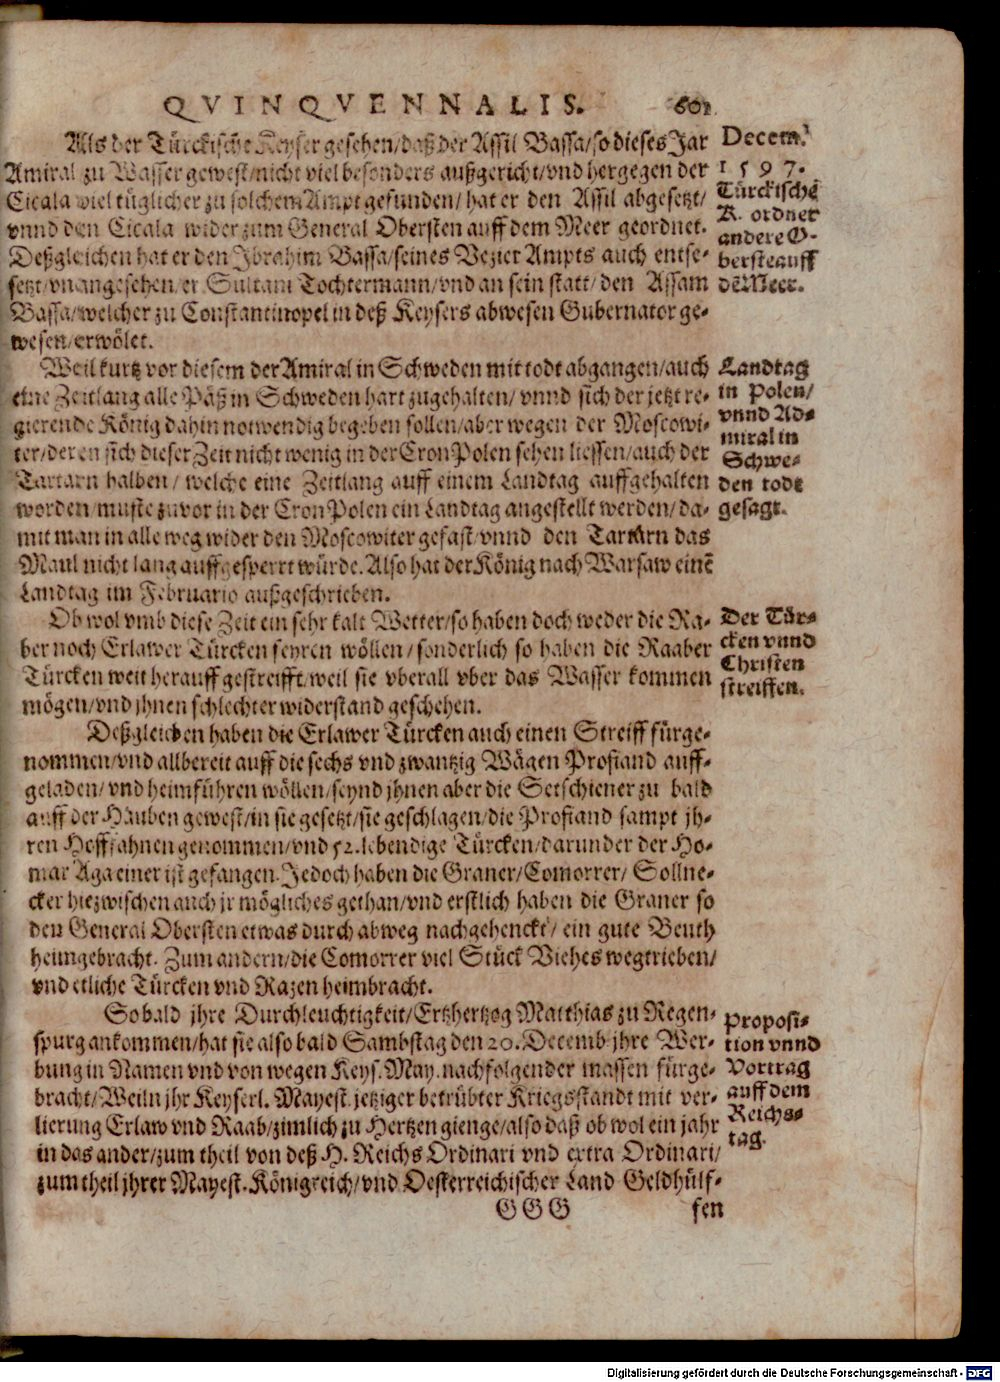 QVINQVENNALIS. 601
Als der Türckische Keyser gesehen/daß der Assil Bassa/so dieses Jar
Amiral zu Wasser gewest/nicht viel besonders außgericht/vnd hergegen der
Cicala viel tüglicher zu solchem Ampt gefunden/hat er den Assil abgesetzt/
vnnd den Cicala wider zum General Obersten auff dem Meer geordnet.
Deßgleichen hat er den Jbrahim Bassa/seines Vezier Ampts auch entse-
setzt/vnangesehen/er Sultani Tochtermann/vnd an sein statt/den Assam
Bassa/welcher zu Constantinopel in deß Keysers abwesen Gubernator ge-
wesen/erwölet.
Decem.
1597.
Türckische
K. ordnet
andere O-
berste auff
dē Meer.
Weil kurtz vor diesem der Amiral in Schweden mit todt abgangen/auch
eine Zeitlang alle Päß in Schweden hart zugehalten/vnnd sich der jetzt re-
gierende König dahin notwendig begeben sollen/aber wegen der Moscowi-
ter/deren sich dieser Zeit nicht wenig in der Cron Polen sehen liessen/auch der
Tartarn halben/welche eine Zeitlang auff einem Landtag auffgehalten
worden/muste zuvor in der Cron Polen ein Landtag angestellt werden/da-
mit man in alle weg wider den Moscowiter gefast/vnnd den Tartarn das
Maul nicht lang auffgesperrt würde. Also hat der König nach Warsaw einē
Landtag im Februario außgeschrieben.
Landtag
in Polen/
vnnd Ad-
miral in
Schwe-
den todt
gesagt.
Ob wol vmb diese Zeit ein sehr kalt Wetter/so haben doch weder die Ra-
ber noch Erlawer Türcken feyren wöllen/sonderlich so haben die Raaber
Türcken weit herauff gestreifft/weil sie vberall vber das Wasser kommen
mögen/vnd jhnen schlechter widerstand geschehen.
Der Tür-
cken vnnd
Christen
streiffen.
Deßgleichen haben die Erlawer Türcken auch einen Streiff fürge-
nommen/vnd allbereit auff die sechs vnd zwantzig Wägen Profiand auff-
geladen/vnd heimführen wöllen/seynd jhnen aber die Setschiener zu bald
auff der Hauben gewest/in sie gesetzt/sie geschlagen/die Profiand sampt jh-
ren Hefffahnen genommen/vnd 52. lebendige Türcken/darunder der Ho-
mar Aga einer ist gefangen. Jedoch haben die Graner/Comorrer/Sollne-
cker hiezwischen auch jr mögliches gethan/vnd erstlich haben die Graner so
den General Obersten etwas durch abweg nachgehenckt/ein gute Beuth
heimgebracht. Zum andern/die Comorrer viel Stück Viehes wegtrieben/
vnd etliche Türcken vnd Razen heimbracht.
Sobald jhre Durchleuchtigkeit/Ertzhertzog Matthias zu Regen-
spurg ankommen/hat sie also bald Sambstag den 20. Decemb. jhre Wer-
bung in Namen vnd von wegen Keys. May. nachfolgender massen fürge-
bracht/Weiln jhr Keyserl. Mayest. jetziger betrübter Kriegsstandt mit ver-
lierung Erlaw vnd Raab/zimlich zu Hertzen gienge/also daß ob wol ein jahr
in das ander/zum theil von deß H. Reichs Ordinari vnd extra Ordinari/
zum theil jhrer Mayest. Königreich/vnd Oesterreichischer Land Geldhülf-
Proposi-
tion vnnd
Vortrag
auff dem
Reichs-
tag.
GGG fen
Digitalisierung gefördert durch die Deutsche Forschungsgemeinschaft - DFG